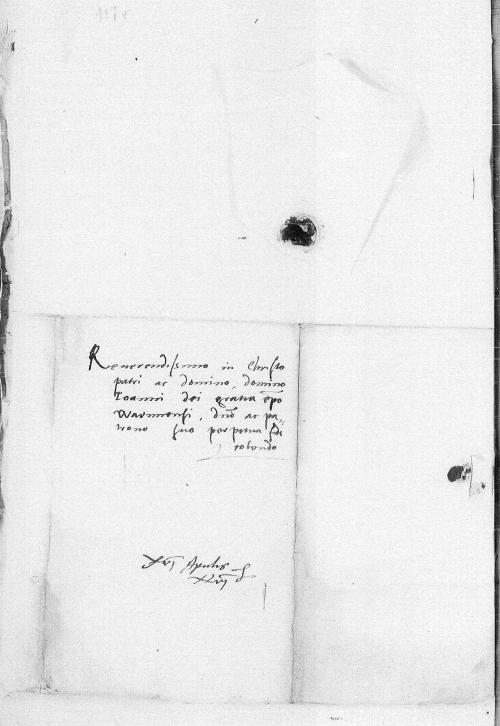 117v
Reverendissimo in Christo
patri ac domino, domino
Ioanni dei gratia epo
Warmiensi, dno ac pa,
trono suo perpetua fide
colendo
Aprilis